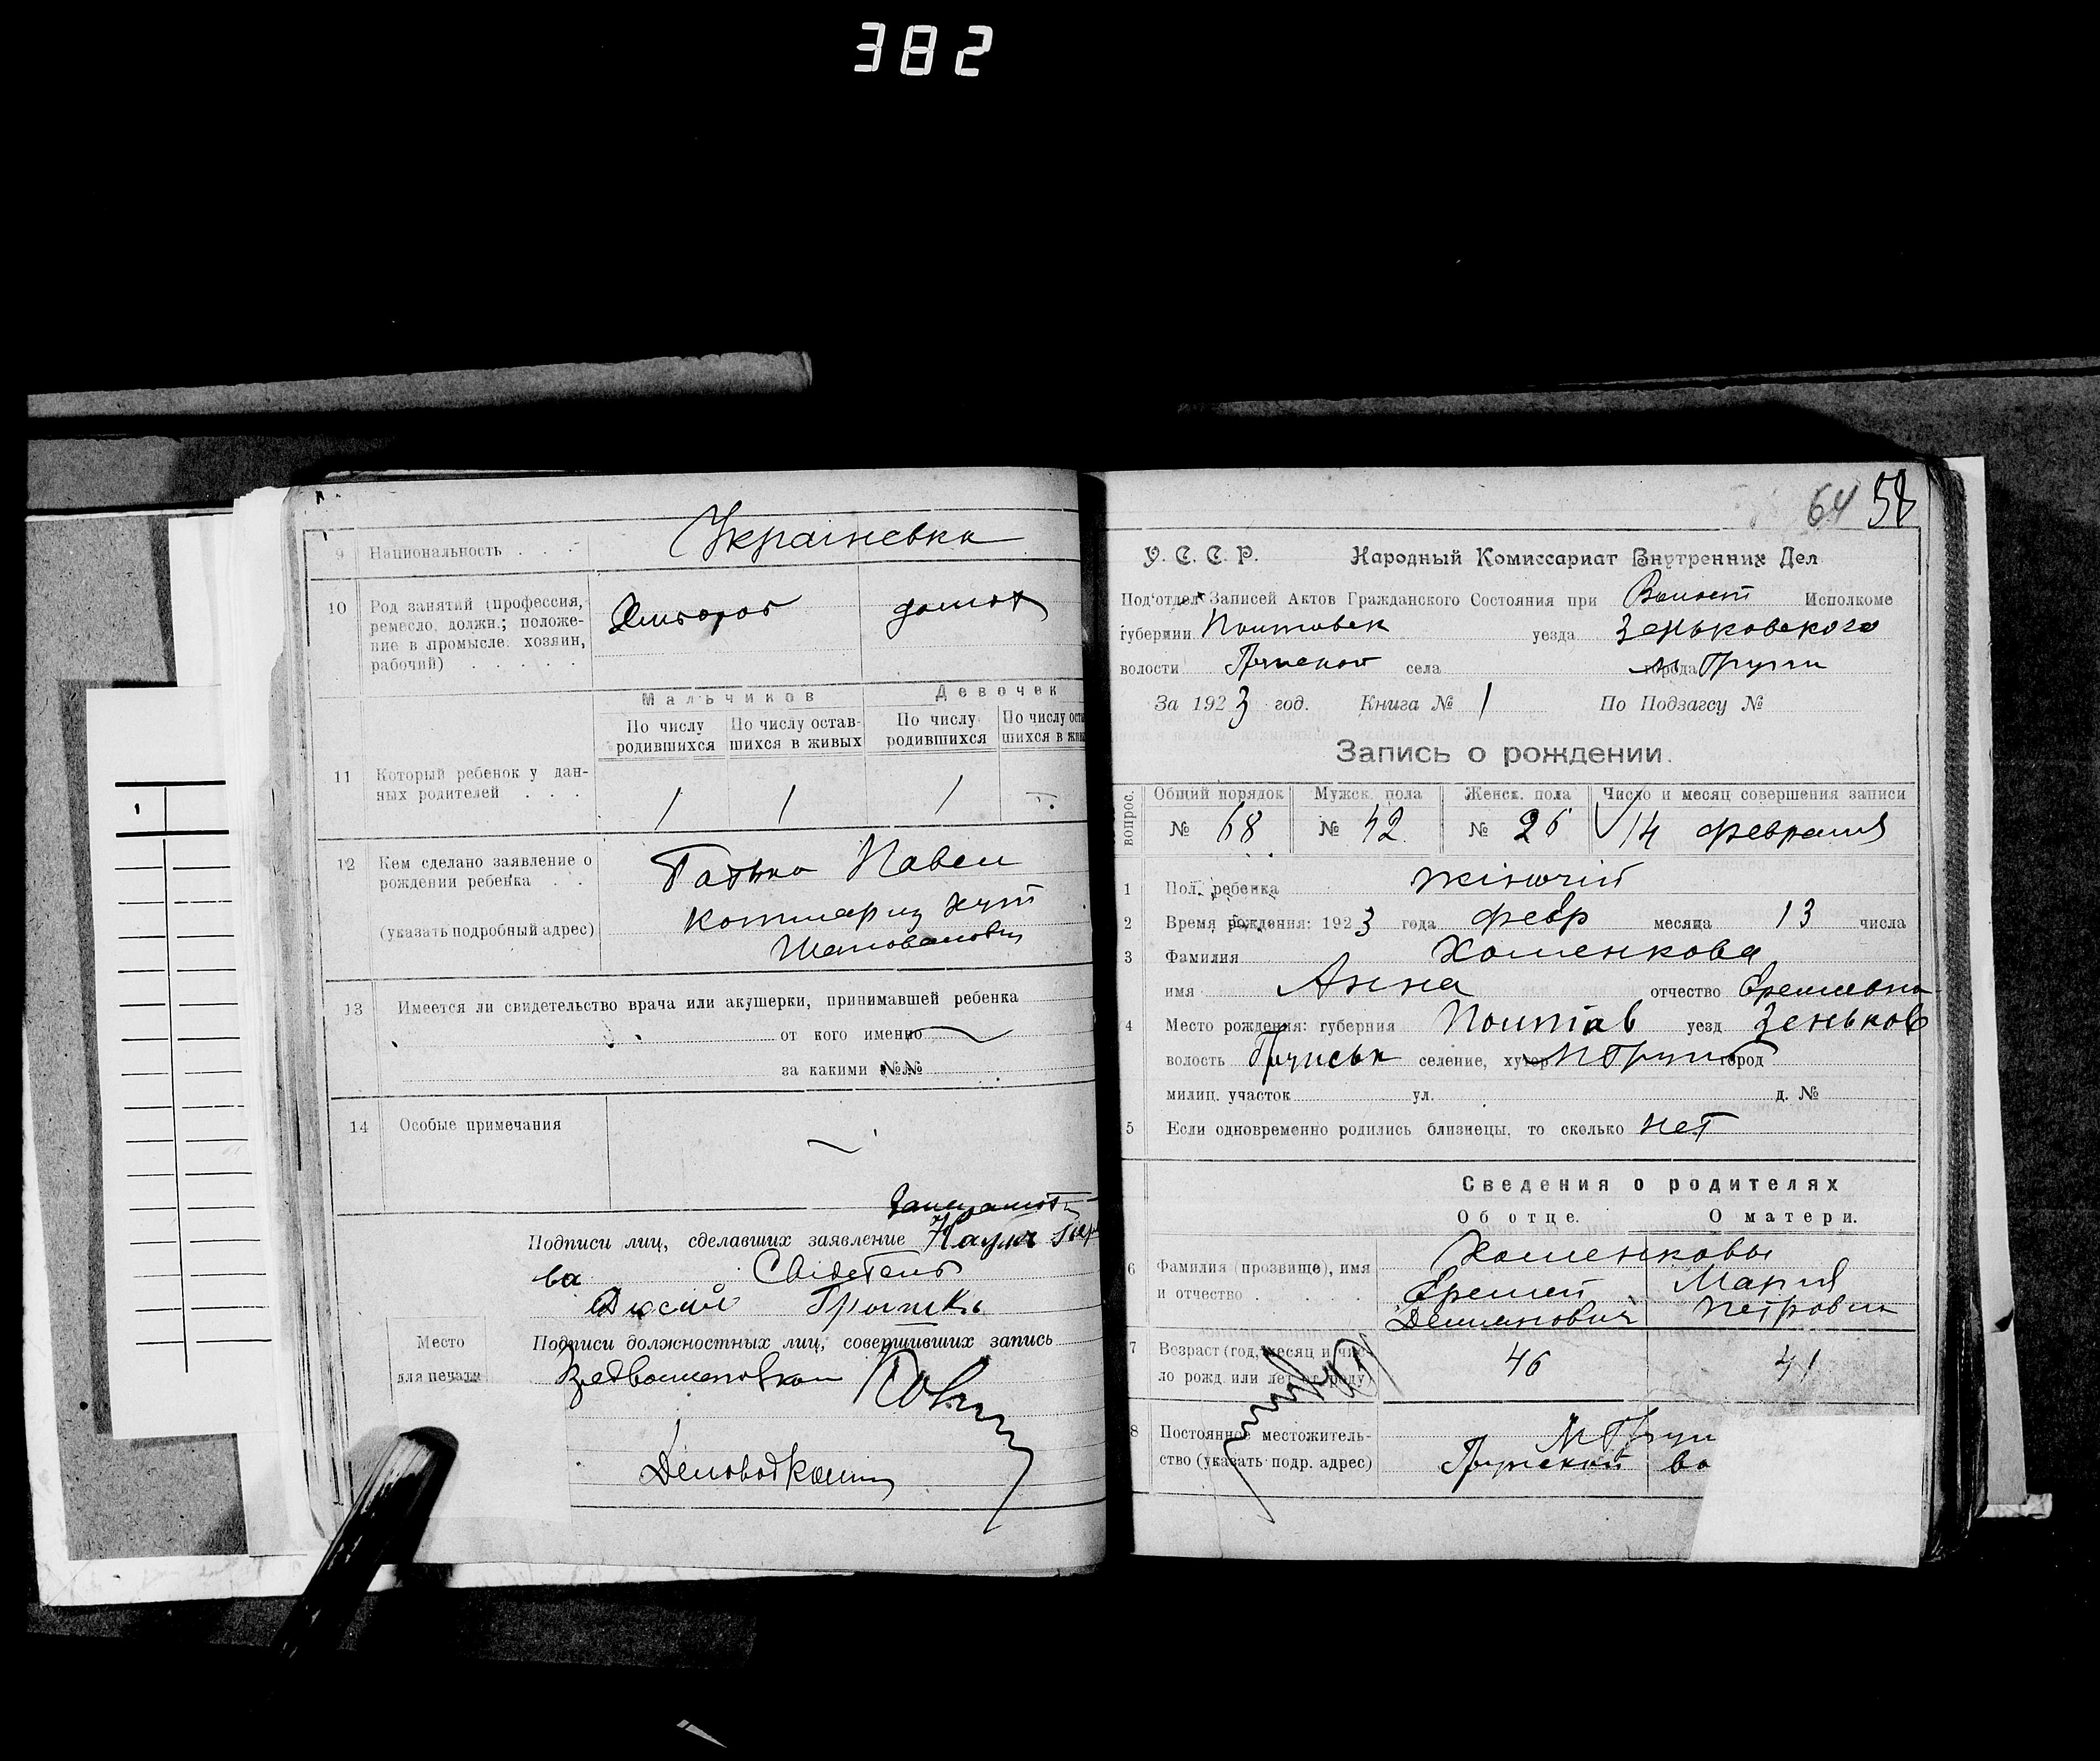 382
9 Национальность . . . Українська
10 Род занятий (профессия,
ремесло, должн.; положе-
ние в промысле: хозяин,
рабочий) . . . . .
Хлібороб
Мальчиков Девочек
По числу родившихся
По числу остав-шихся в живых
По числу родившихся
По числу оста шихся в жив
11 Который ребенок у дан-
ных родителей . . .
1 1 1 —
12 Кем сделано заявление о
рождении ребенка . .
(указать подробный адрес)
Батько Павел
13 Имеется ли свидетельство врача или акушерки, принимавшей ребенка
от кого именно
за какими №№
14 Особые примечания
Подписи лиц, сделавших заявление
ва Свідетель
Подписи должностных лиц, совершивших запись
Место
для печати
64 58
У. С. С. Р. Народный Комиссариат Внутренних Дел
Под'отдел Записей Актов Гражданского Состояния при Волост Исполкоме
губернии Полтавск уезда Зеньковского
волости Грунской села города м Груни
За 1923 год. Книга № 1 По Подзагсу №
Запись о рождении.
вопрос.
Общий порядок Мужск. пола Женск. пола Число и месяц совершения записи
№ 68 № 42 № 26 14 февраля
1 Пол ребенка жіночій
2 Время рождения: 1923 года февр месяца 13 числа
3 Фамилия Хоменкова
имя Анна отчество Еремеевна
4 Место рождения: губерния Полтав уезд Зеньков
волость Груньськ селение, хутор м Грунь город
милиц. участок ул. д. №
5 Если одновременно родились близнецы, то сколько нет
Сведения о родителях
Об отце. О матери.
6 Фамилия (прозвище), имя
и отчество . . . .
Хоменковы
Еремей Мария
Демьянович Петровна
7 Возраст (год, месяц и чис-
ло рожд. или лет от роду)
46 41
8 Постоянное местожитель-
ство (указать подр. адрес)
м Грун
Грунской во